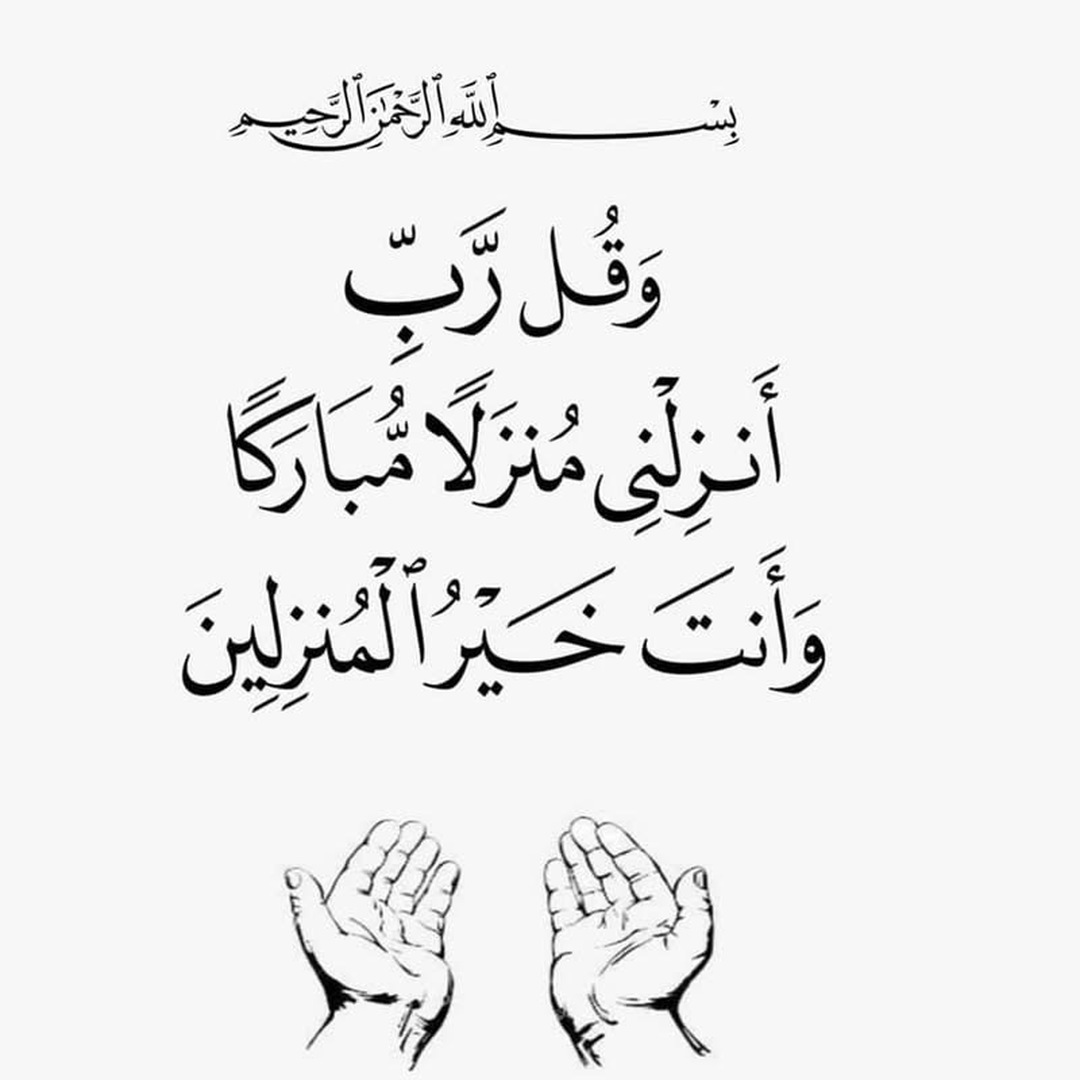 بِسْمِ ٱللَّهِ ٱلرَّحْمَٰنِ ٱلرَّحِيمِ
وَقُل رَّبِّ
أَنزِلْنِى مُنزَلًا مُّبَارَكًا
وَأَنتَ خَيْرُ ٱلْمُنزِلِينَ